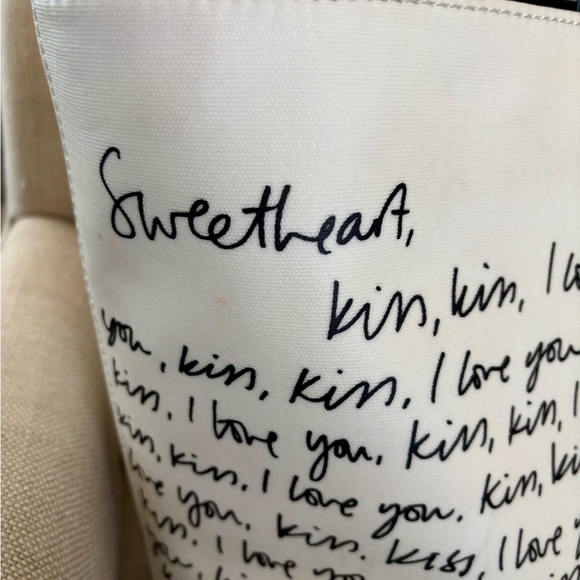 Sweetheart,
kiss, kiss, I
you, kiss, kiss, I love you
kiss, I love you, kiss, kiss, I
kiss, kiss, I love you, kiss,
love you, kiss, kiss, I love
kiss, I love you